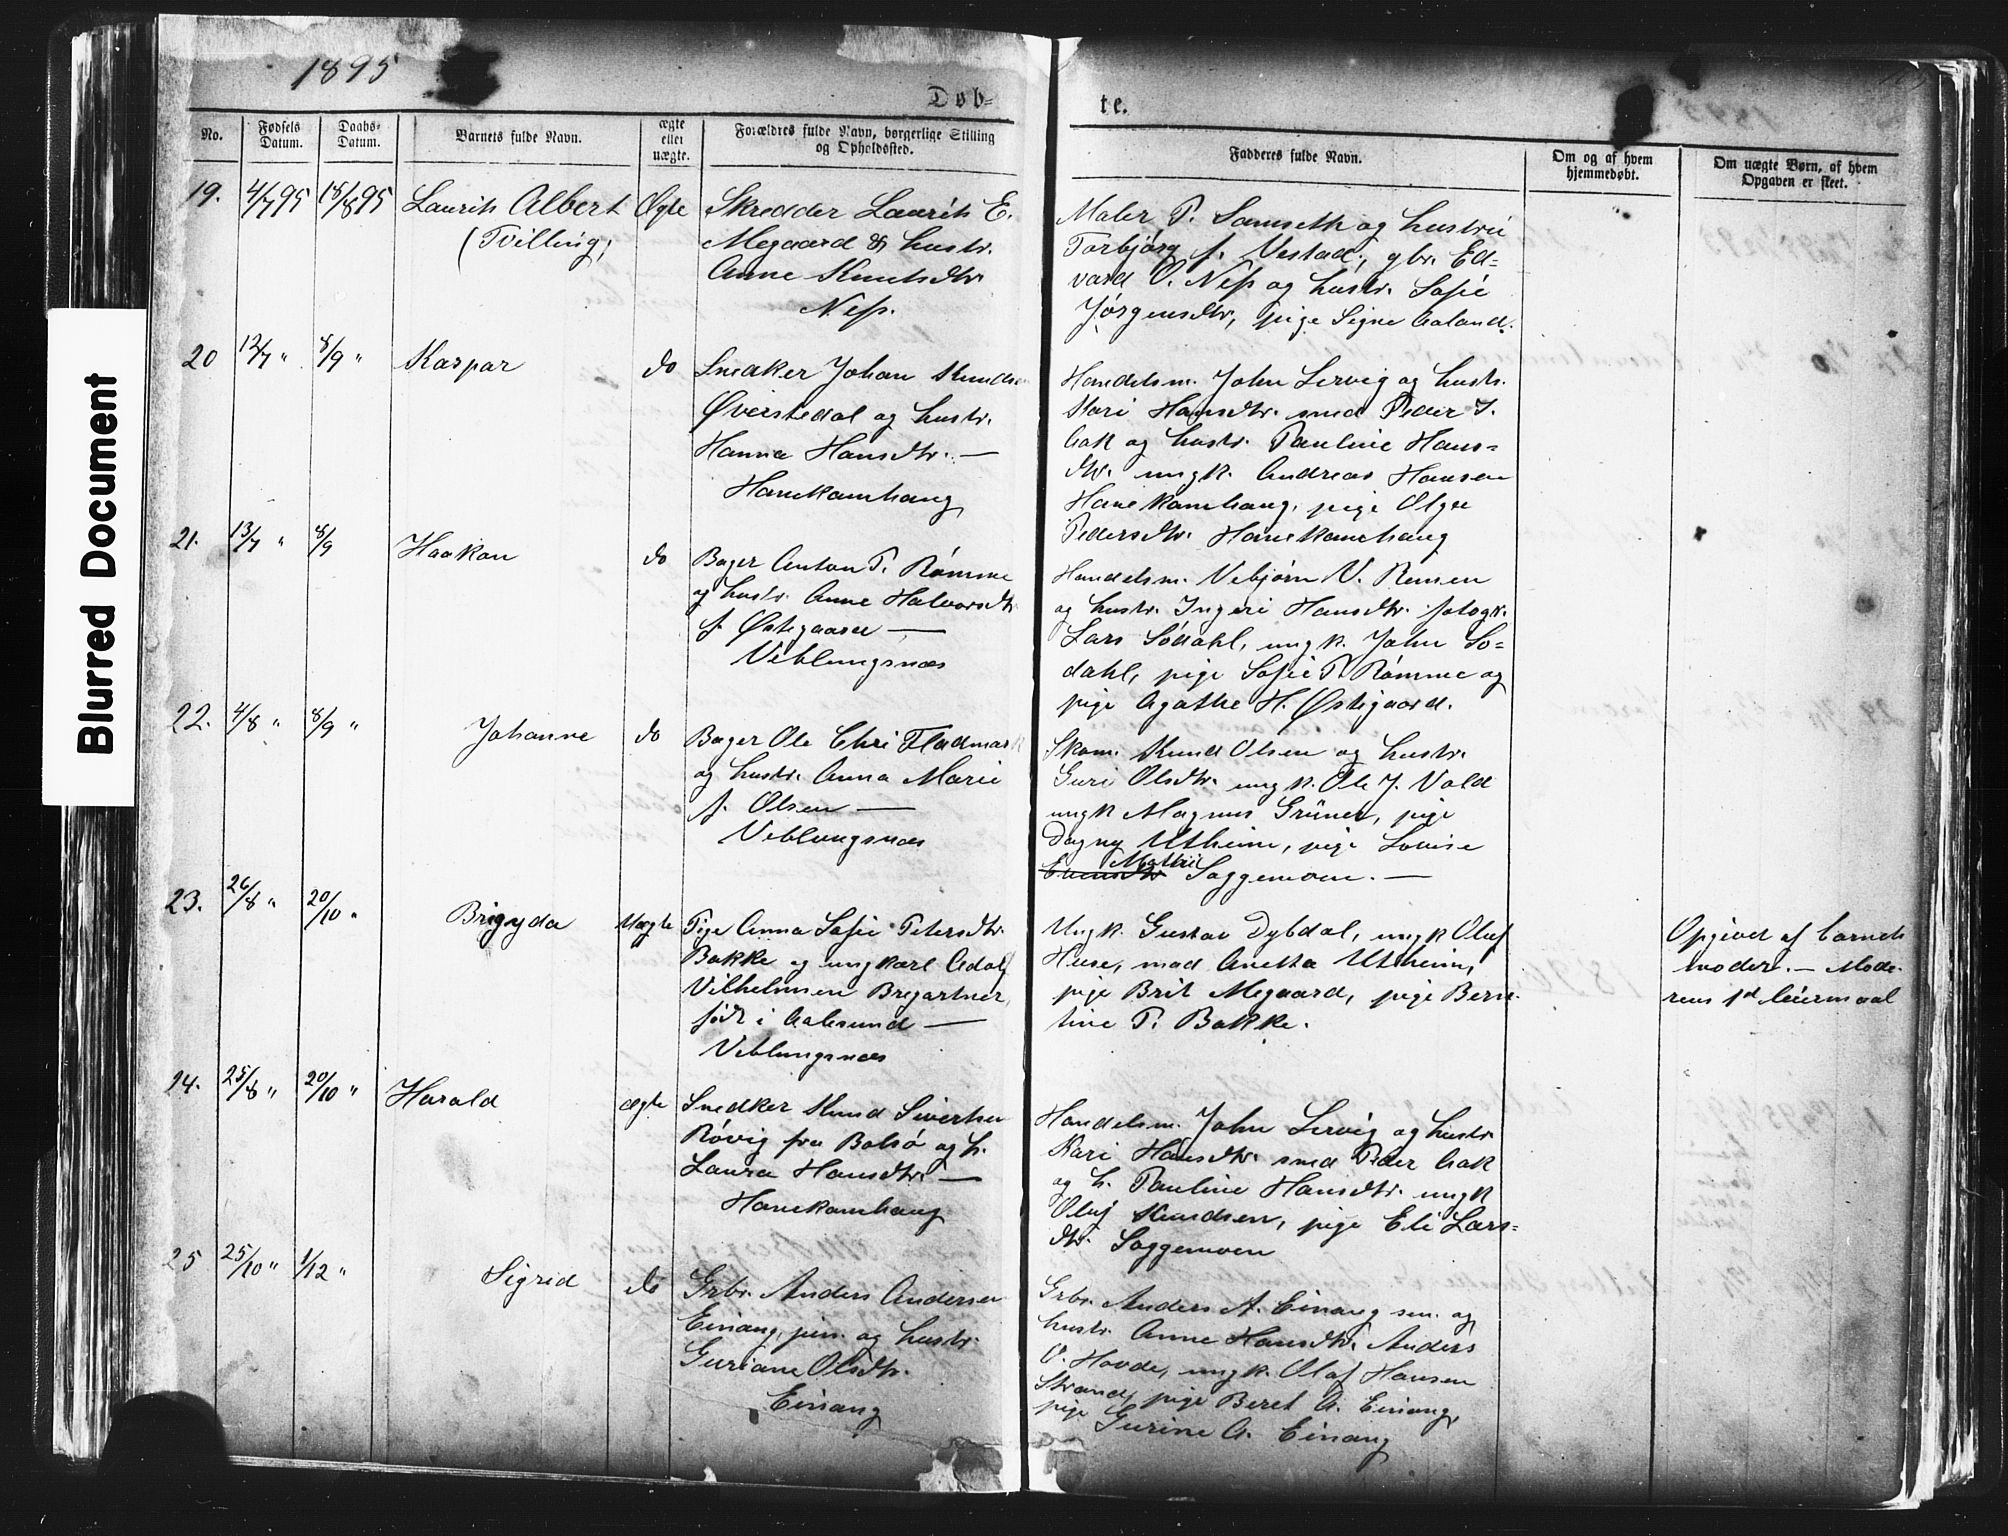 Blurred Document
1895
Døb=
te.
No.
Fødsels Datum.
Daabs-Datum.
Barnets fulde Navn.
ægte eller uægte.
Forældres fulde Navn, borgerlige Stilling og Opholdssted.
Fadderes fulde Navn.
Om og af hvem hjemmedøbt.
Om uægte Børn, af hvem Opgaven er skeet.
19. 4/7 95 18/8 95 Laurits Albert Ægte
(Tvilling)
Skredder Laurits E.
Megaard & hustr.
Anne Knutsdtr
Ness.
Maler P. Samseth og hustru
Torbjørg f. Vestad, gbr. Ed=
vard O. Ness og hustr. Sofie
Jørgensdtr, pige Signe Aaland.
20 12/7 " 8/9 " Kaspar do
Snedker Johan Knuds
Øverstedal og hustr.
Hanna Hansdtr. —
Hanekamhaug
Handelsm. John Lervig og hustr.
Kari Hansdtr. smed Peder J.
Aak og hustr. Pauline Hans=
dtr. ungk. Andreas Hansen
Hanekamhaug, pige Olga
Pedersdtr. Hanekamhaug
21. 13/7 " 8/9 Haakon do
Bager Anton P. Rømme
og hustr. Anne Halvorsdtr
f. Østigaard —
Veblungsnæs
Handelsm. Vebjørn V. Rensen
og hustr. Ingeri Hansdtr. fotogr.
Lars Sødahl, ungk. John Sø=
dahl, pige Sofie P. Rømme og
pige Agathe H. Østigaard.
22. 4/8 " 8/9 " Johanne do
Bager Ole Chri Fladmark
og hustr. Anna Marie
f. Olsen —
Veblungsnæs
Skom. Knud Olsen og hustr.
Guri Olsdtr. ungk. Ole J. Vold
ungk Magnus Grüner, pige
Dagny Utheim, pige Lovise
Mathie
Soggemoen. —
23. 26/8 " 20/10 " Brigyda Uægte
Pige Anna Sofie Petersdtr.
Bakke og ungkarl Adolf
Vilhelmsen Bregartner,
født i Aalesund —
Veblungsnæs
Ungk. Gustav Dybdal, ungk Oluf
Huse, mad Anetta Utheim,
pige Brit Megaard, pige Bern
tine P. Bakke.
Opgivet af barnets
moder. — Mode-
rens 1ste leiermaal
24. 25/8 " 20/10 " Harald ægte
Snedker Knud Sivertsen
Røvig fra Bolsø og h.
Laura Hansdtr. —
Hanekamhaug
Handelsm. John Lervig og hustr.
Kari Hansdtr. smed Peder Aak
og h. Pauline Hansdtr. ungk
Oluf Knudsen, pige Eli Lars=
dtr. Soggemoen
25 25/10 " 1/12 " Sigrid do
Grbr. Anders Andersen
Einang, jun. og hustr.
Guriane Olsdtr.
Einang
Grbr. Anders A. Einang sen. og
hustr. Anne Hansdtr. Anders
O. Hovde, ungk. Olaf Hansen
Strand, pige Beret A. Einang,
pige Gurine A. Einang